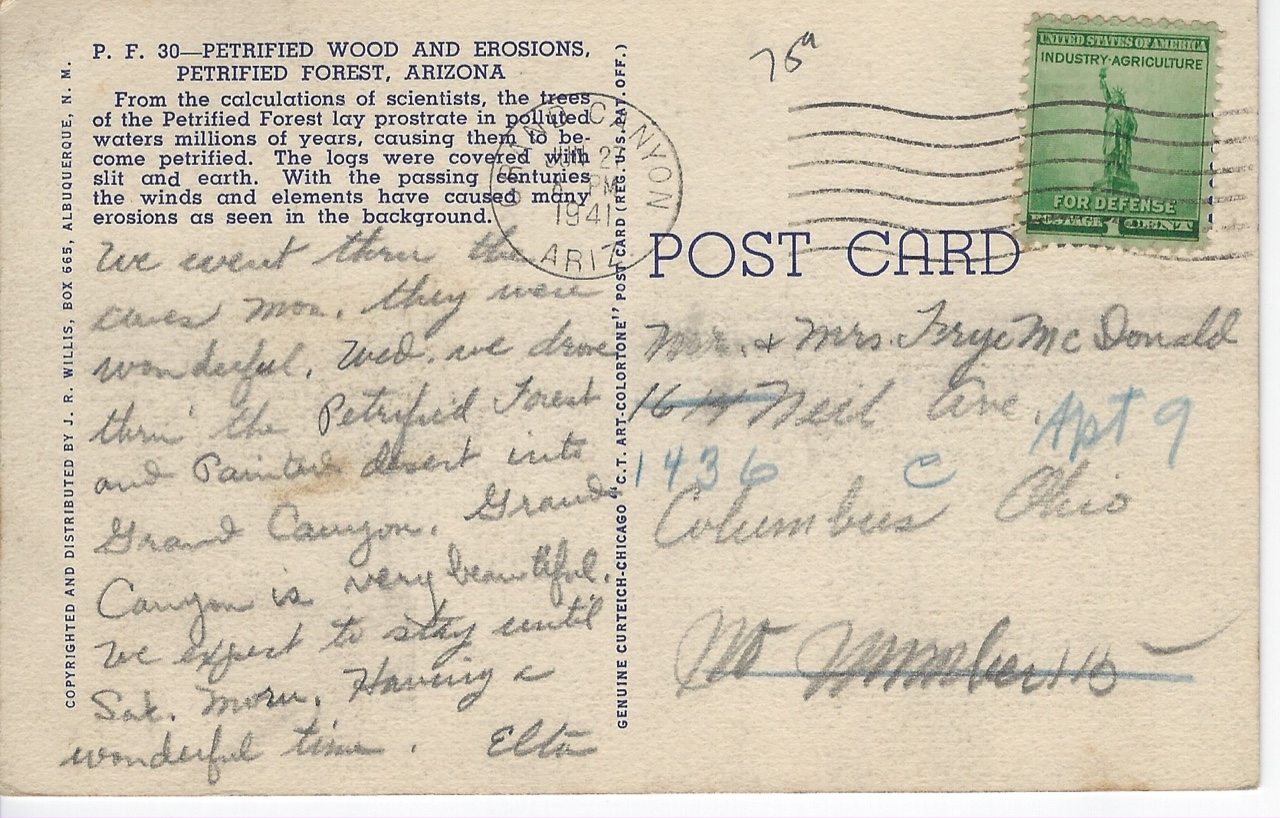 P. F. 30—PETRIFIED WOOD AND EROSIONS,
PETRIFIED FOREST, ARIZONA
From the calculations of scientists, the trees
of the Petrified Forest lay prostrate in polluted
waters millions of years, causing them to be-
come petrified. The logs were covered with
slit and earth. With the passing centuries
the winds and elements have caused many
erosions as seen in the background.
We went thru the
caves Mon. they were
wonderful. Wed. we drove
thru the Petrified Forest
and Painted desert into
Grand Canyon. Grand
Canyon is very beautiful.
We expect to stay until
Sat. morn. Having a
wonderful time. Elta
COPYRIGHTED AND DISTRIBUTED BY J. R. WILLIS, BOX 665, ALBUQUERQUE, N. M.
GENUINE CURTEICH-CHICAGO "C.T. ART-COLORTONE" POST CARD (REG. U.S. PAT. OFF.)
GRAND CANYON
JUN 27
PM
1941
ARIZ
UNITED STATES OF AMERICA
INDUSTRY·AGRICULTURE
FOR DEFENSE
POSTAGE 1 CENT
POST CARD
Mr. & Mrs. Frye McDonald
1614 Neil Ave.
Apt 9
1436 C
Columbus Ohio
No